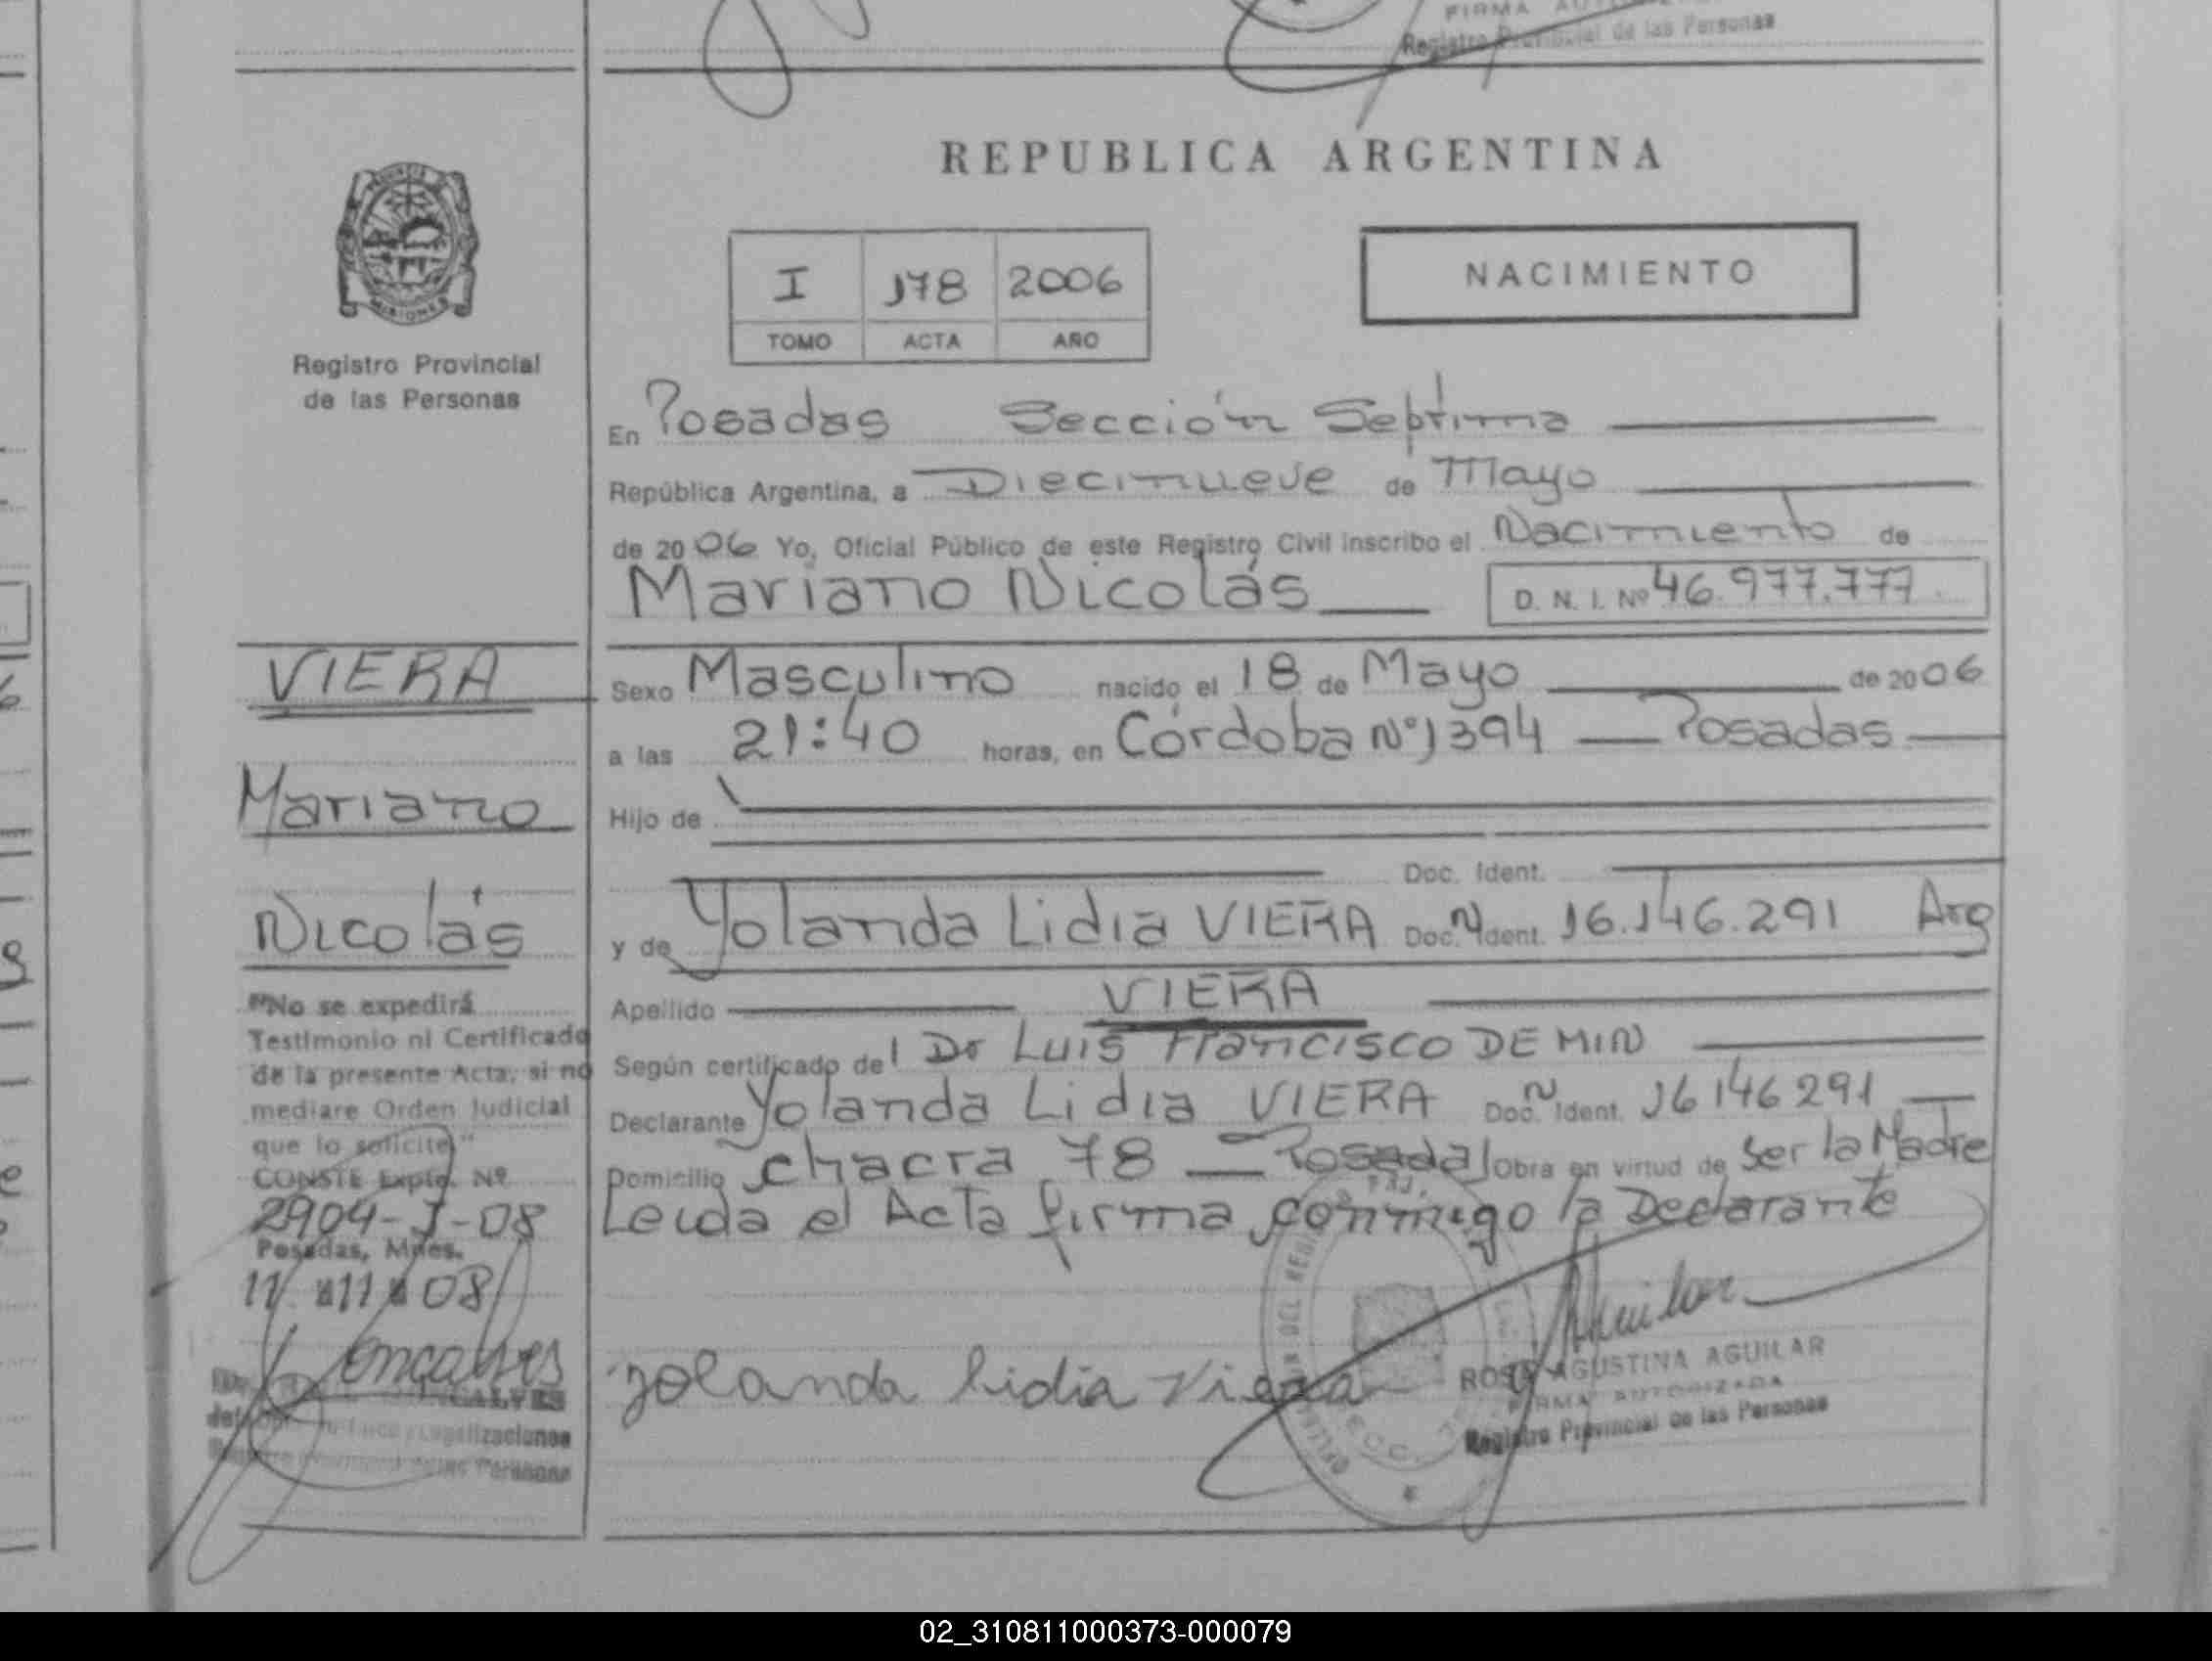 FIRMA
Registro Provincial de las Personas
REPUBLICA ARGENTINA
MISIONES
Registro Provincial
de las Personas
I 178 2006
TOMO ACTA AÑO
NACIMIENTO
En Posadas Sección Septima
República Argentina, a Diecinueve de Mayo
de 2006 Yo, Oficial Público de este Registro Civil inscribo el Nacimiento de
Mariano Nicolás D. N. I. Nº 46.977.777
Sexo Masculino nacido el 18 de Mayo de 2006
a las 21:40 horas, en Córdoba Nº 1394 — Posadas
Hijo de
Doc. Ident.
y de Yolanda Lidia VIERA Doc. Ident. 16.146.291 Arg
Apellido VIERA
Según certificado del Dr Luis Francisco DE MIN
Declarante Yolanda Lidia VIERA Doc. Ident. 16146291
Domicilio chacra 78 — Posadas Obra en virtud de Ser la Madre
Leida el Acta firma conmigo la Declarante
Yolanda Lidia Viera
Aguilar
ROSA AGUSTINA AGUILAR
FIRMA AUTORIZADA
Registro Provincial de las Personas
VIERA
Mariano
Nicolás
"No se expedirá
Testimonio ni Certificado
de la presente Acta, si no
mediare Orden Judicial
que lo solicite"
CONSTE Expte. Nº
2904-J-08
Posadas, Mnes.
11 11 08
Gonçalves
Legalizaciones
de las Personas
02_310811000373-000079